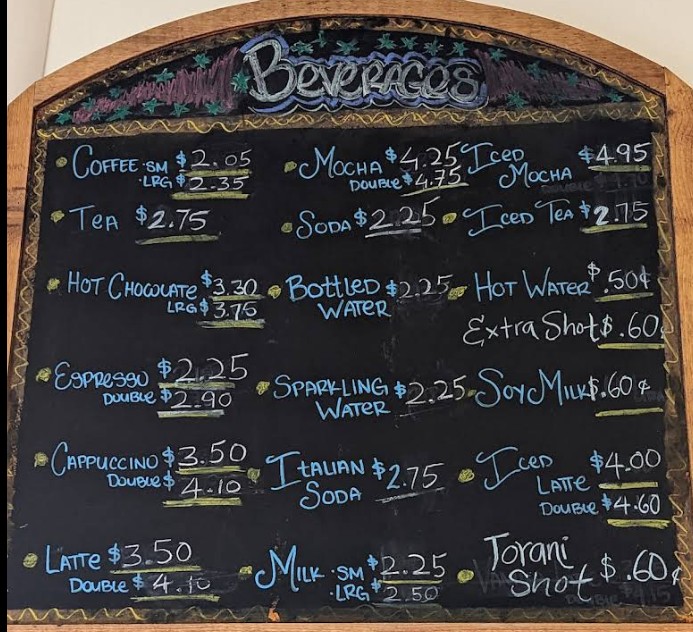 BEVERAGES
COFFEE ·SM $2.05
·LRG $2.35
TEA $2.75
HOT CHOCOLATE $3.30
LRG $3.75
ESPRESSO $2.25
DOUBLE $2.90
CAPPUCCINO $3.50
DOUBLE $4.10
LATTE $3.50
DOUBLE $4.10
MOCHA $4.25
DOUBLE $4.75
SODA $2.25
BOTTLED $2.25
WATER
SPARKLING $2.25
WATER
ITALIAN $2.75
SODA
MILK ·SM $2.25
·LRG $2.50
ICED $4.95
MOCHA
ICED TEA $2.75
HOT WATER $.50¢
Extra Shot $.60
SOY MILK $.60¢
ICED $4.00
LATTE
DOUBLE $4.60
Torani
Shot $.60¢